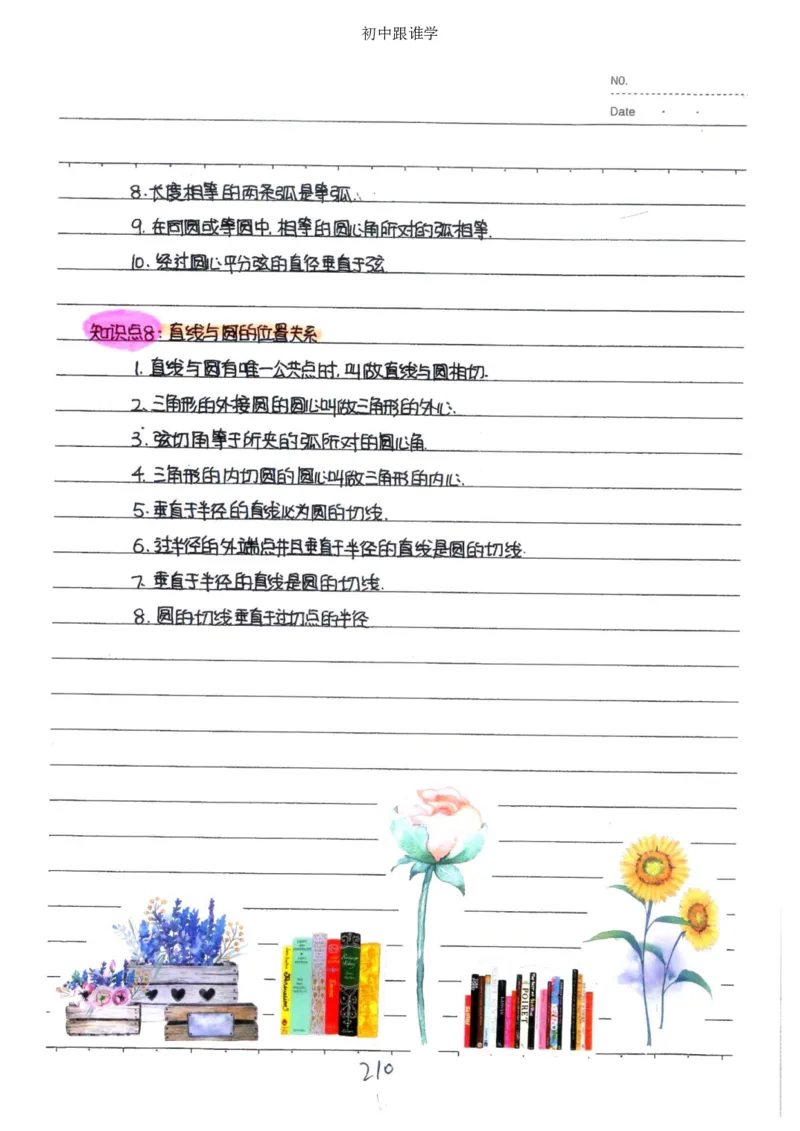 初中跟谁学
NO.
Date
8.长度相等的两条弧是等弧.
9.在同圆或等圆中,相等的圆心角所对的弧相等.
10.经过圆心平分弦的直径垂直于弦
知识点8:直线与圆的位置关系
1.直线与圆有唯一公共点时,叫做直线与圆相切.
2.三角形的外接圆的圆心叫做三角形的外心.
3.弦切角等于所夹的弧所对的圆心角.
4.三角形的内切圆的圆心叫做三角形的内心.
5.垂直于半径的直线必为圆的切线.
6.过半径的外端点并且垂直于半径的直线是圆的切线.
7.垂直于半径的直线是圆的切线.
8.圆的切线垂直于过切点的半径
POIRET
210